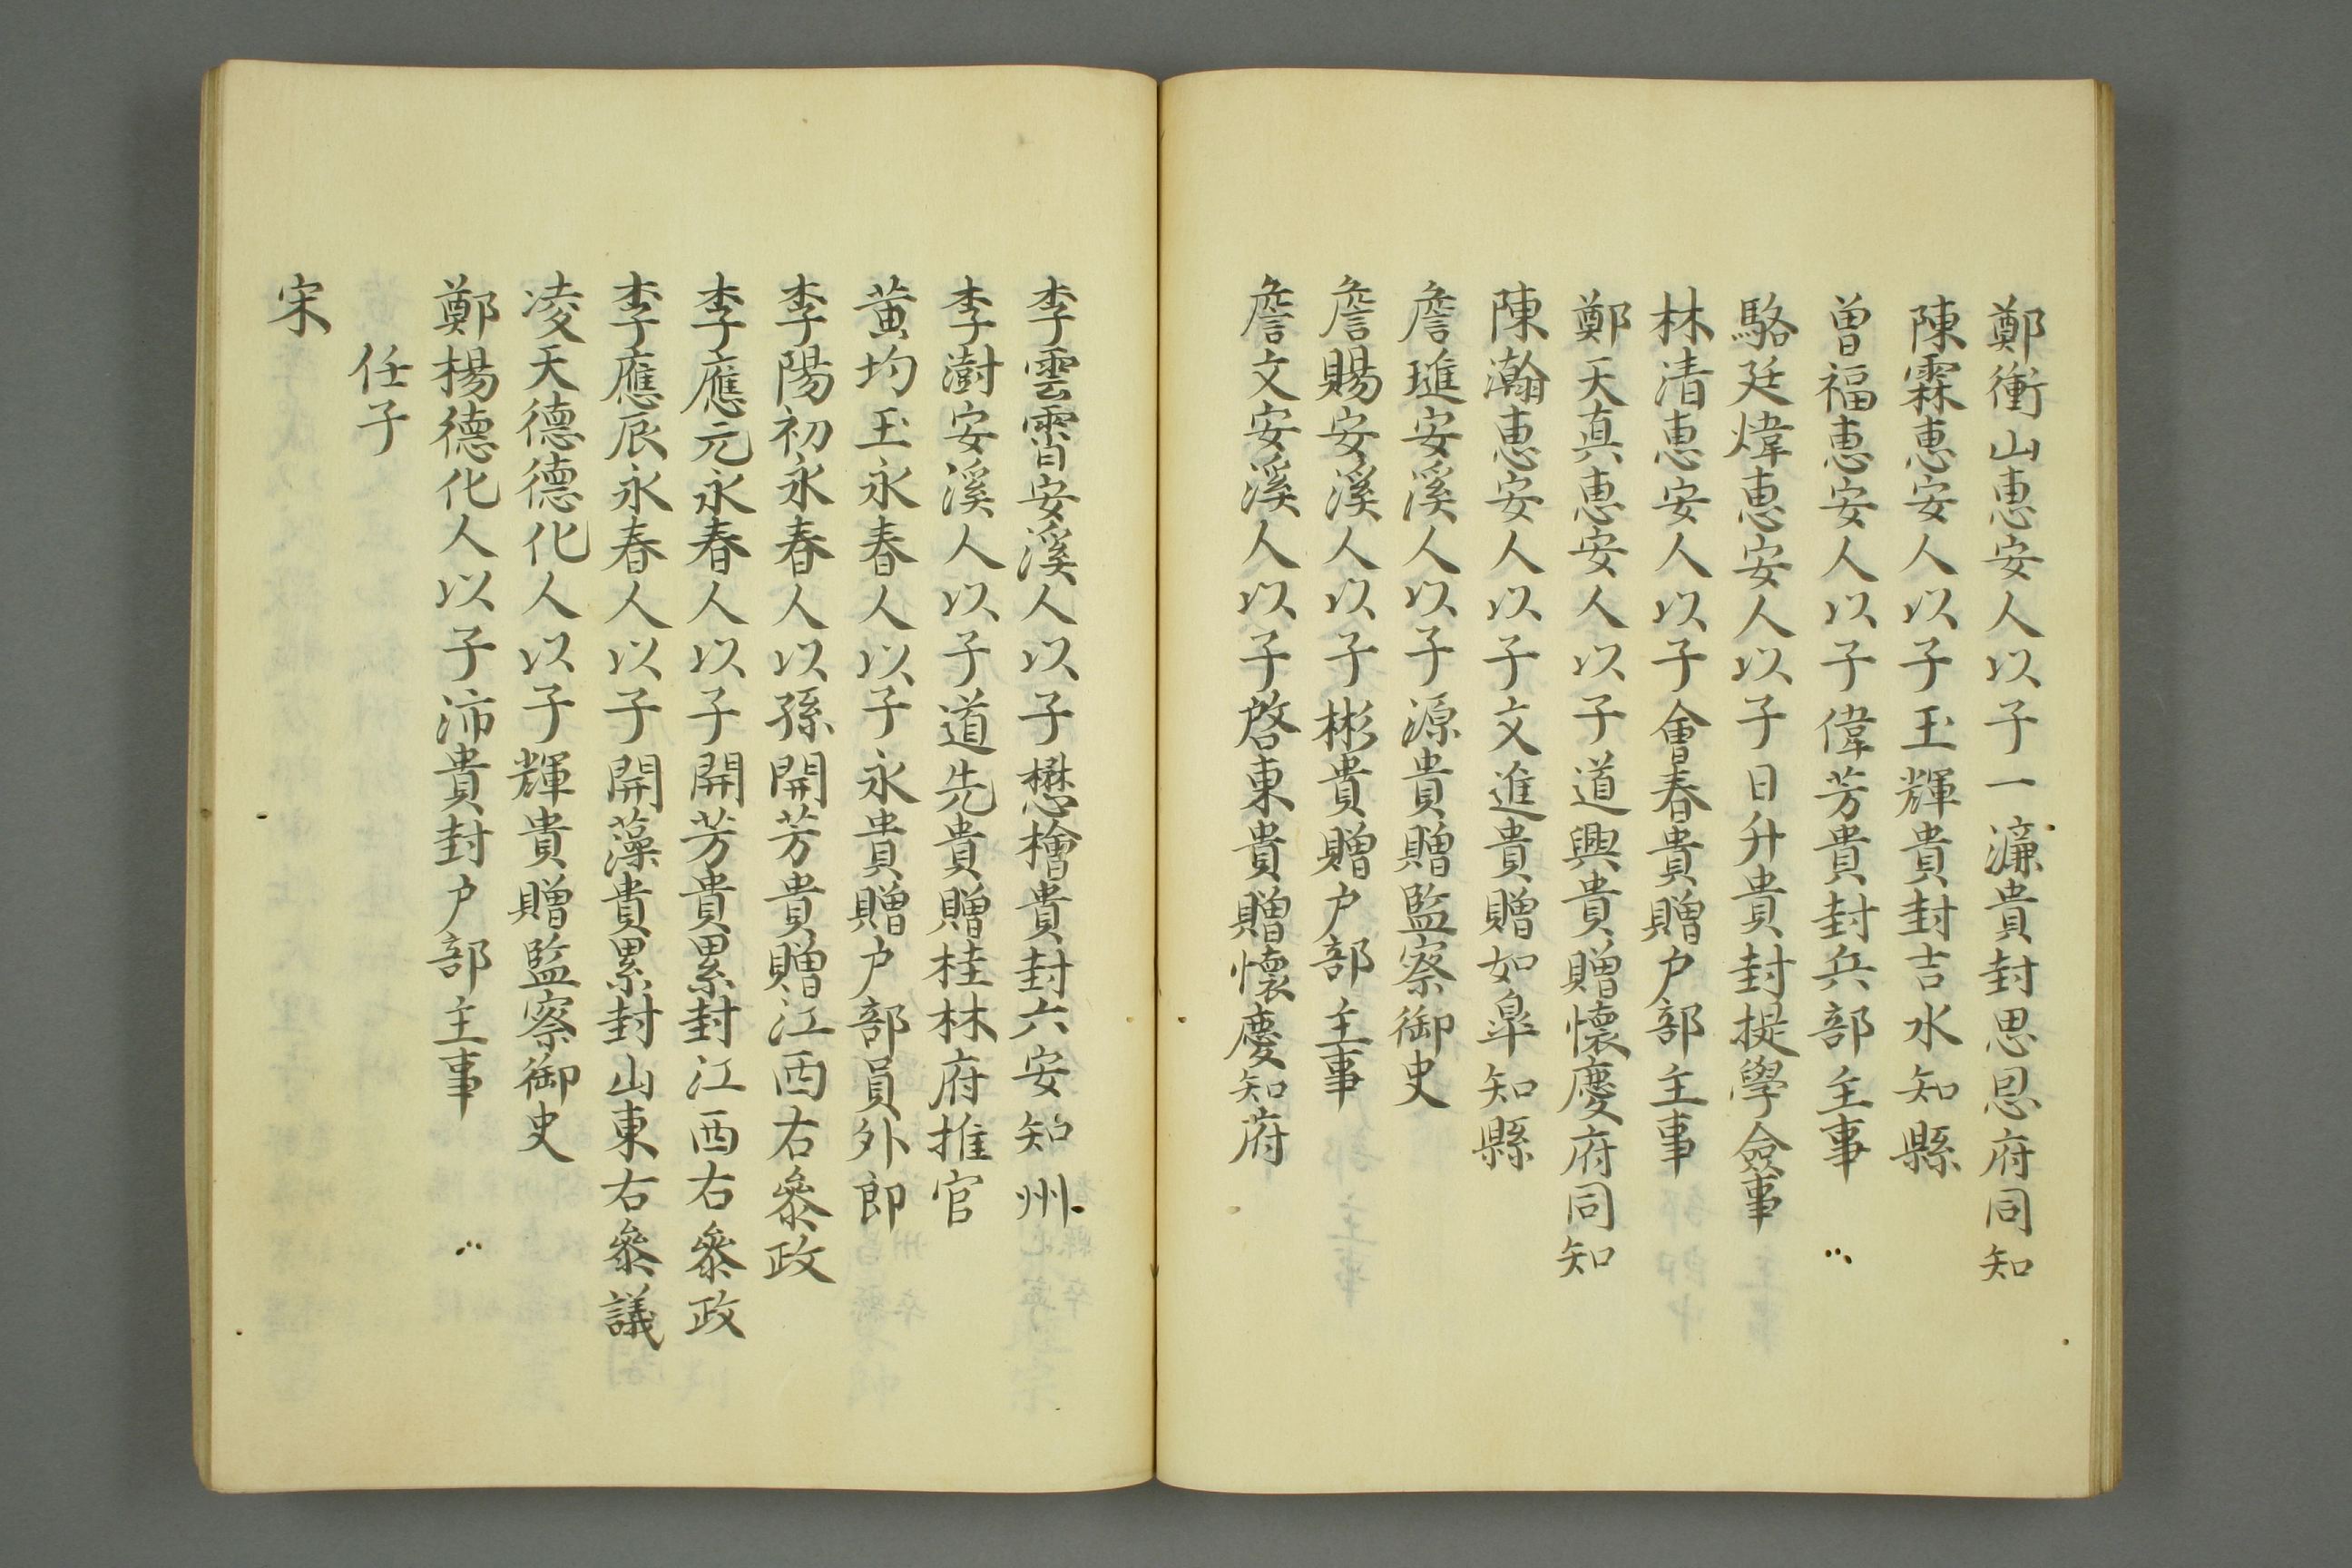 鄭衝山惠安人以子一濂貴封思恩府同知
陳霖惠安人以子玉輝貴封吉水知縣
曾福惠安人以子偉芳貴封兵部主事
駱廷煒惠安人以子日升貴封提學僉事
林清惠安人以子會春貴贈户部主事
鄭天真惠安人以子道興貴贈懷慶府同知
陳瀚惠安人以子文進貴贈如皐知縣
詹璡安溪人以子源貴贈監察御史
詹賜安溪人以子彬貴贈户部主事
詹文安溪人以子啓東貴贈懷慶知府
李雲霄安溪人以子懋檜貴封六安知州
李澍安溪人以子道先貴贈桂林府推官
黃均玉永春人以子永貴贈户部員外郎
李陽初永春人以孫開芳貴贈江西右叅政
李應元永春人以子開芳貴累封江西右叅政
李應辰永春人以子開藻貴累封山東右叅議
凌天德德化人以子輝貴贈監察御史
鄭楊德化人以子沛貴封户部主事
任子
宋